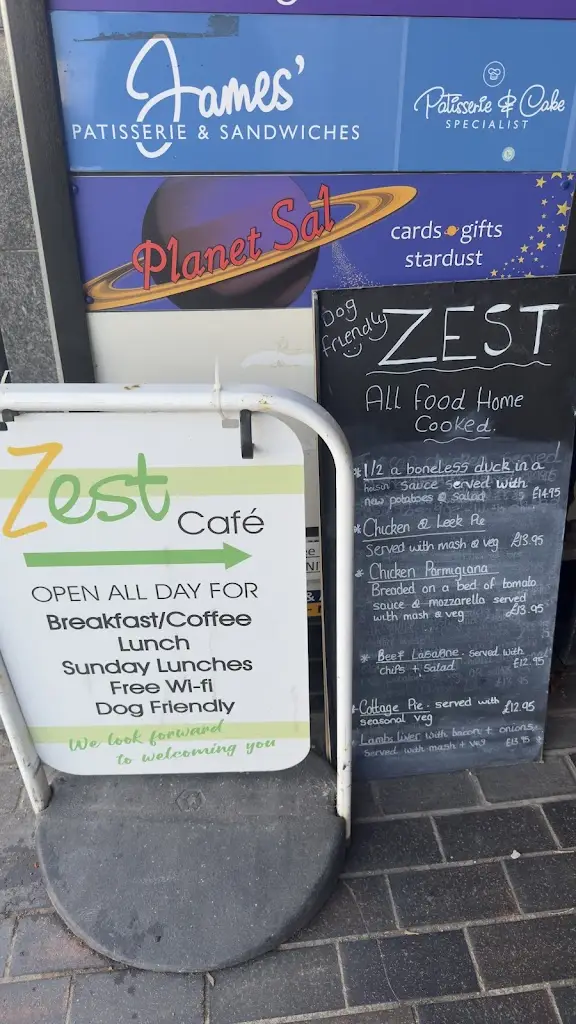 James'
PATISSERIE & SANDWICHES
Patisserie & Cake
SPECIALIST
Planet Sal
cards gifts
stardust
Dog
friendly
ZEST
All Food Home
Cooked.
* 1/2 a boneless duck in a
hoisin sauce served with
new potatoes & salad £14.95
* Chicken & Leek Pie
Served with mash & veg £13.95
* Chicken Parmigiana
Breaded on a bed of tomato
sauce & mozzarella served
with mash & veg £13.95
* Beef Lasagne. served with
chips + salad. £12.95
* Cottage Pie. served with
seasonal veg £12.95
* Lambs liver with bacon + onions
served with mash + veg £13.95
Zest
Café
OPEN ALL DAY FOR
Breakfast/Coffee
Lunch
Sunday Lunches
Free Wi-fi
Dog Friendly
We look forward
to welcoming you